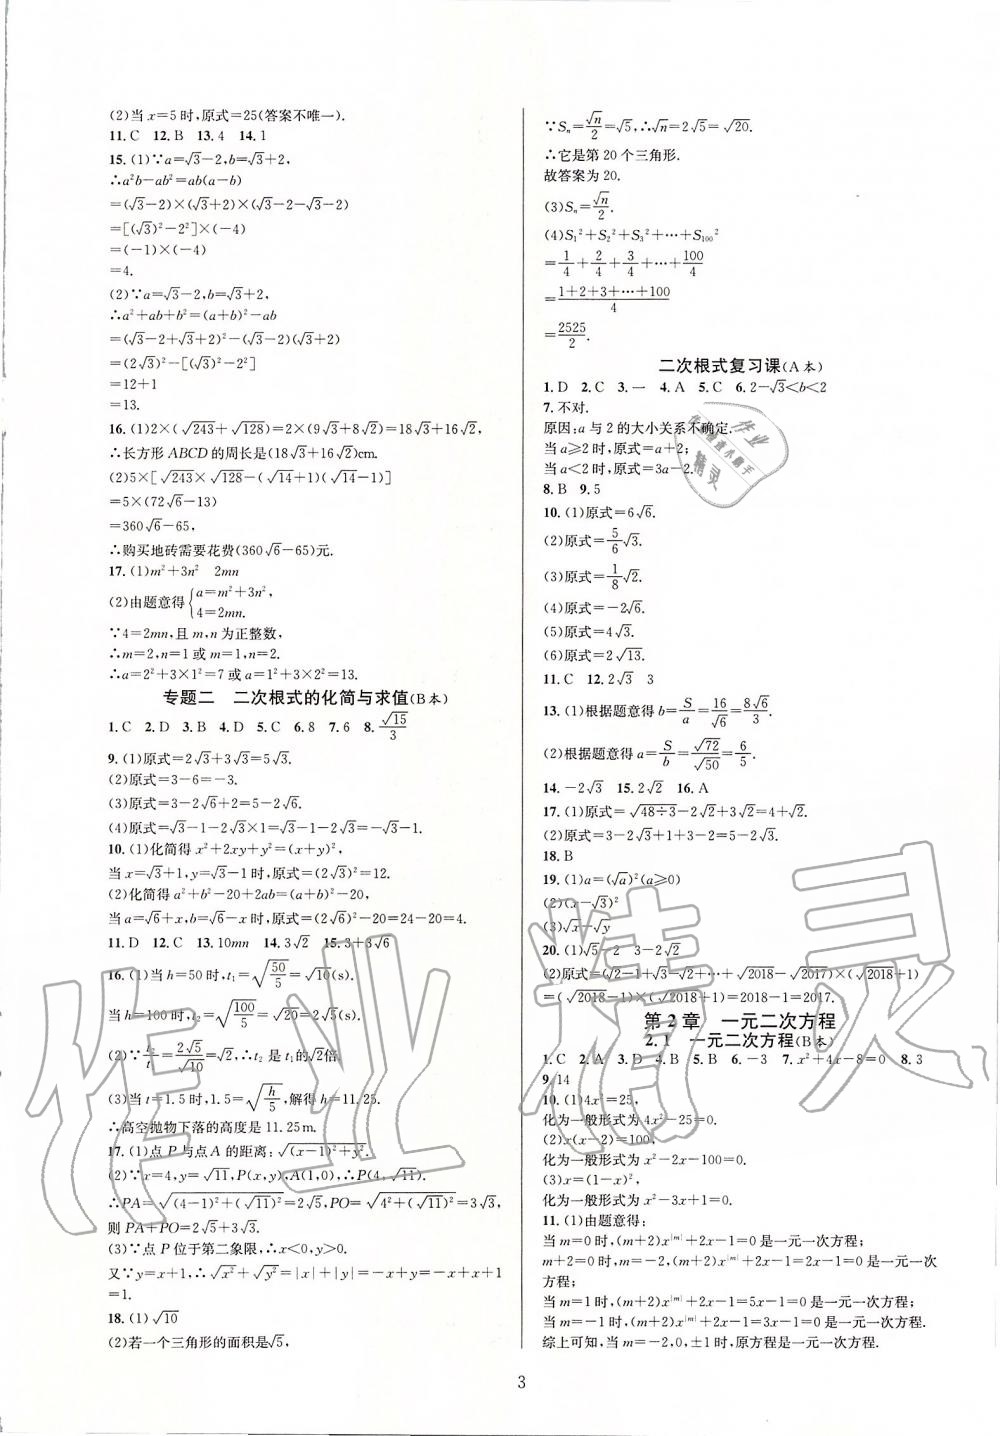 (2)当 x=5 时,原式=25(答案不唯一).
11. C 12. B 13. 4 14. 1
15. (1)∵a=√3-2,b=√3+2,
∴a²b-ab²=ab(a-b)
=(√3-2)×(√3+2)×(√3-2-√3-2)
=[(√3)²-2²]×(-4)
=(-1)×(-4)
=4.
(2)∵a=√3-2,b=√3+2,
∴a²+ab+b²=(a+b)²-ab
=(√3-2+√3+2)²-(√3-2)(√3+2)
=(2√3)²-[(√3)²-2²]
=12+1
=13.
16. (1)2×(√243+√128)=2×(9√3+8√2)=18√3+16√2,
∴长方形 ABCD 的周长是(18√3+16√2)cm.
(2)5×[√243×√128-(√14+1)(√14-1)]
=5×(72√6-13)
=360√6-65,
∴购买地砖需要花费(360√6-65)元.
17. (1)m²+3n² 2mn
(2)由题意得{a=m²+3n², 4=2mn.
∵4=2mn,且 m,n 为正整数,
∴m=2,n=1 或 m=1,n=2.
∴a=2²+3×1²=7 或 a=1²+3×2²=13.
专题二 二次根式的化简与求值(B本)
1. C 2. D 3. B 4. D 5. C 6. 8 7. 6 8. √15/3
9. (1)原式=2√3+3√3=5√3.
(2)原式=3-6=-3.
(3)原式=3-2√6+2=5-2√6.
(4)原式=√3-1-2√3×1=√3-1-2√3=-√3-1.
10. (1)化简得 x²+2xy+y²=(x+y)²,
当 x=√3+1,y=√3-1 时,原式=(2√3)²=12.
(2)化简得 a²+b²-20+2ab=(a+b)²-20,
当 a=√6+x,b=√6-x 时,原式=(2√6)²-20=24-20=4.
11. D 12. C 13. 10mn 14. 3√2 15. 3+3√6
16. (1)当 h=50 时,t₁=√(50/5)=√10(s).
当 h=100 时,t₂=√(100/5)=√20=2√5(s).
(2)∵t₂/t₁=2√5/√10=√2,∴t₂ 是 t₁的√2倍.
(3)当 t=1.5 时,1.5=√(h/5),解得 h=11.25.
∴高空抛物下落的高度是 11.25 m.
17. (1)点 P 与点 A 的距离:√((x-1)²+y²).
(2)∵x=4,y=√11,P(x,y),A(1,0),∴P(4,√11),
∴PA=√((4-1)²+(√11)²)=2√5,PO=√(4²+(√11)²)=3√3,
则 PA+PO=2√5+3√3.
(3)∵点 P 位于第二象限,∴x<0,y>0.
又∵y=x+1,∴√x²+√y²=|x|+|y|=-x+y=-x+x+1
=1.
18. (1)√10
(2)若一个三角形的面积是√5,
∵Sₙ=√n/2=√5,∴√n=2√5=√20.
∴它是第 20 个三角形.
故答案为 20.
(3)Sₙ=√n/2.
(4)S₁²+S₂²+S₃²+…+S₁₀₀²
=1/4+2/4+3/4+…+100/4
=(1+2+3+…+100)/4
=2525/2.
二次根式复习课(A本)
1. D 2. C 3. 一 4. A 5. C 6. 2-√3<b<2
7. 不对.
原因:a 与 2 的大小关系不确定.
当 a≥2 时,原式=a+2;
当 a<2 时,原式=3a-2.
8. B 9. 5
10. (1)原式=6√6.
(2)原式=5/6√3.
(3)原式=1/8√2.
(4)原式=-2√6.
(5)原式=4√3.
(6)原式=2√13.
11. C 12. 2√3 3
13. (1)根据题意得 b=S/a=16/√6=8√6/3.
(2)根据题意得 a=S/b=√72/√50=6/5.
14. -2√3 15. 2√2 16. A
17. (1)原式=√(48÷3)-2√2+3√2=4+√2.
(2)原式=3-2√3+1+3-2=5-2√3.
18. B
19. (1)a=(√a)²(a≥0)
(2)(x-√3)²
(3)√x-√y
20. (1)√5-2 3-2√2
(2)原式=(√2-1+√3-√2+…+√2018-√2017)×(√2018+1)
=(√2018-1)×(√2018+1)=2018-1=2017.
第2章 一元二次方程
2.1 一元二次方程(B本)
1. C 2. A 3. D 4. B 5. B 6. -3 7. x²+4x-8=0 8. 3
9. 14
10. (1)4x²=25,
化为一般形式为 4x²-25=0.
(2)x(x-2)=100,
化为一般形式为 x²-2x-100=0.
(3)x=(1-x)²,
化为一般形式为 x²-3x+1=0.
11. (1)由题意得:
当 m=0 时,(m+2)x|m|+2x-1=0 是一元一次方程;
m+2=0 时,m=-2,(m+2)x|m|+2x-1=0 是一元一次
方程;
当 m=1 时,(m+2)x|m|+2x-1=0 是一元一次方程;
当 m=-1 时,(m+2)x|m|+2x-1=0 是一元一次方程.
综上可知,当 m=-2,0,±1 时,原方程是一元一次方程.
3
作业精灵
作业
精灵